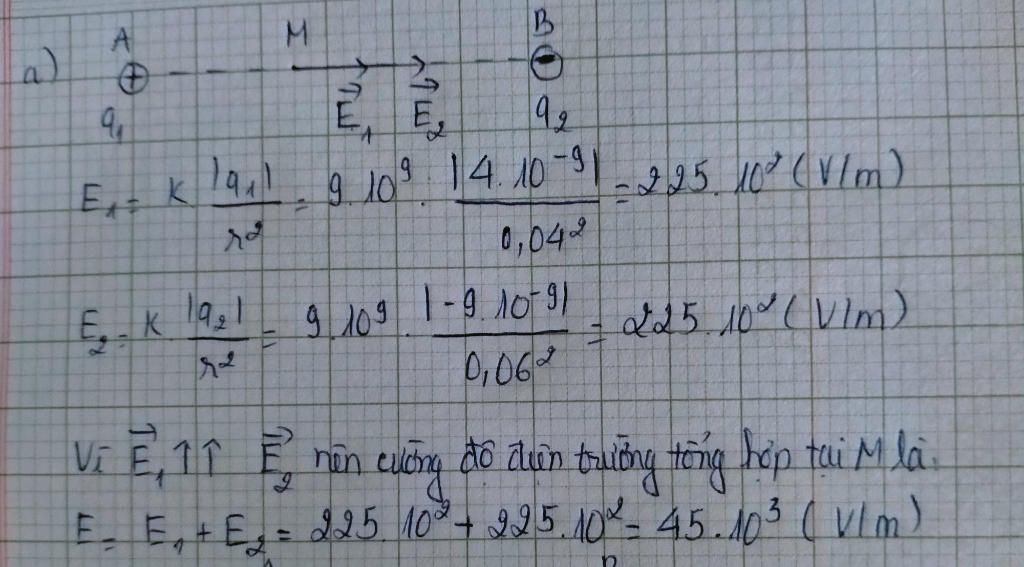 A M B
a) ⊕ ⊖
q₁ E₁⃗ E₂⃗ q₂
E₁ = K |q₁|/r² = 9.10⁹ . |4.10⁻⁹|/0,04² = 225.10² (V/m)
E₂ = K |q₂|/r² = 9.10⁹ . |-9.10⁻⁹|/0,06² = 225.10² (V/m)
Vì E₁⃗ ↑↑ E₂⃗ nên cường độ điện trường tổng hợp tại M là:
E = E₁ + E₂ = 225.10² + 225.10² = 45.10³ (V/m)